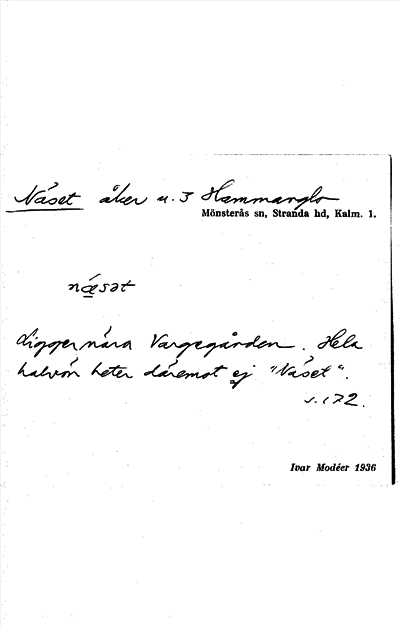 Näset åker u. 3 Hammarglo
Mönsterås sn, Stranda hd, Kalm. l.
næ̀sət
Ligger nära Vargegården. Hela
halvön heter däremot ej "Näset".
s. 172.
Ivar Modéer 1936